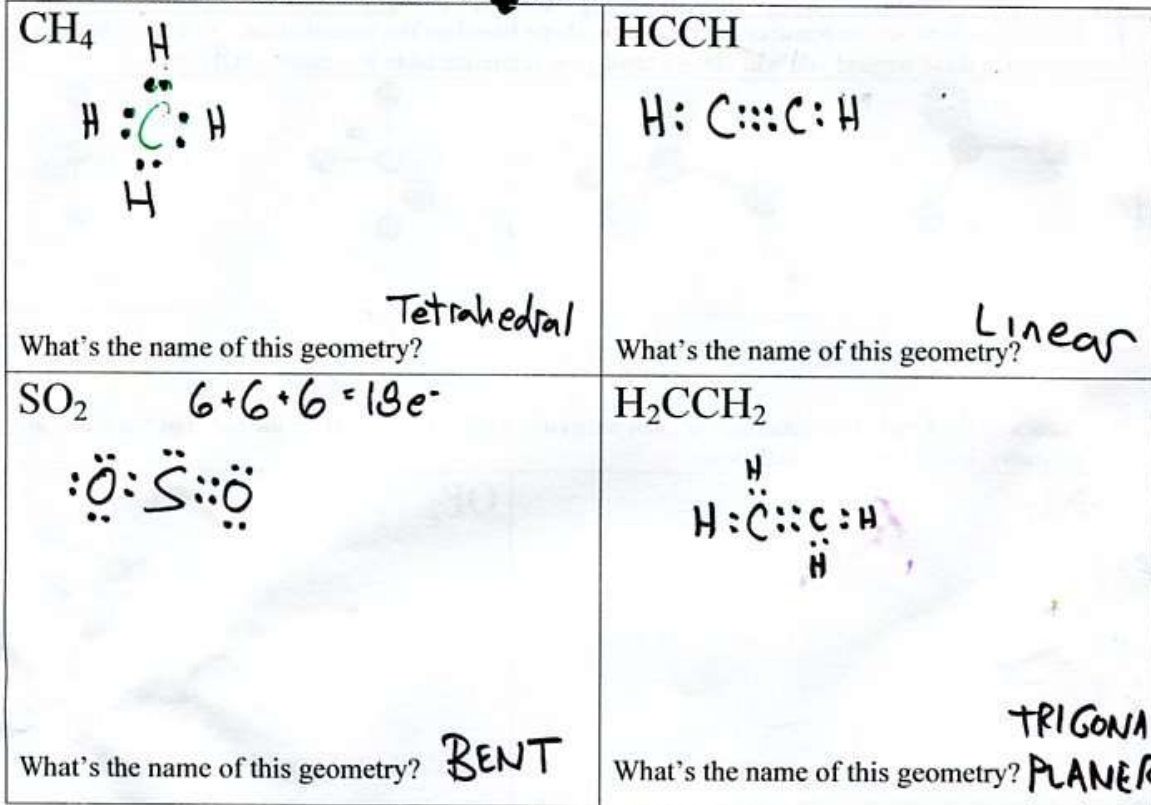 CH₄
H
H : C : H
H
Tetrahedral
What's the name of this geometry?
HCCH
H : C ⋮⋮ C : H
Linear
What's the name of this geometry?
SO₂ 6+6+6 = 18e⁻
:O: S :: O
What's the name of this geometry? BENT
H₂CCH₂
H
H : C :: C : H
H
TRIGONA
What's the name of this geometry? PLANER